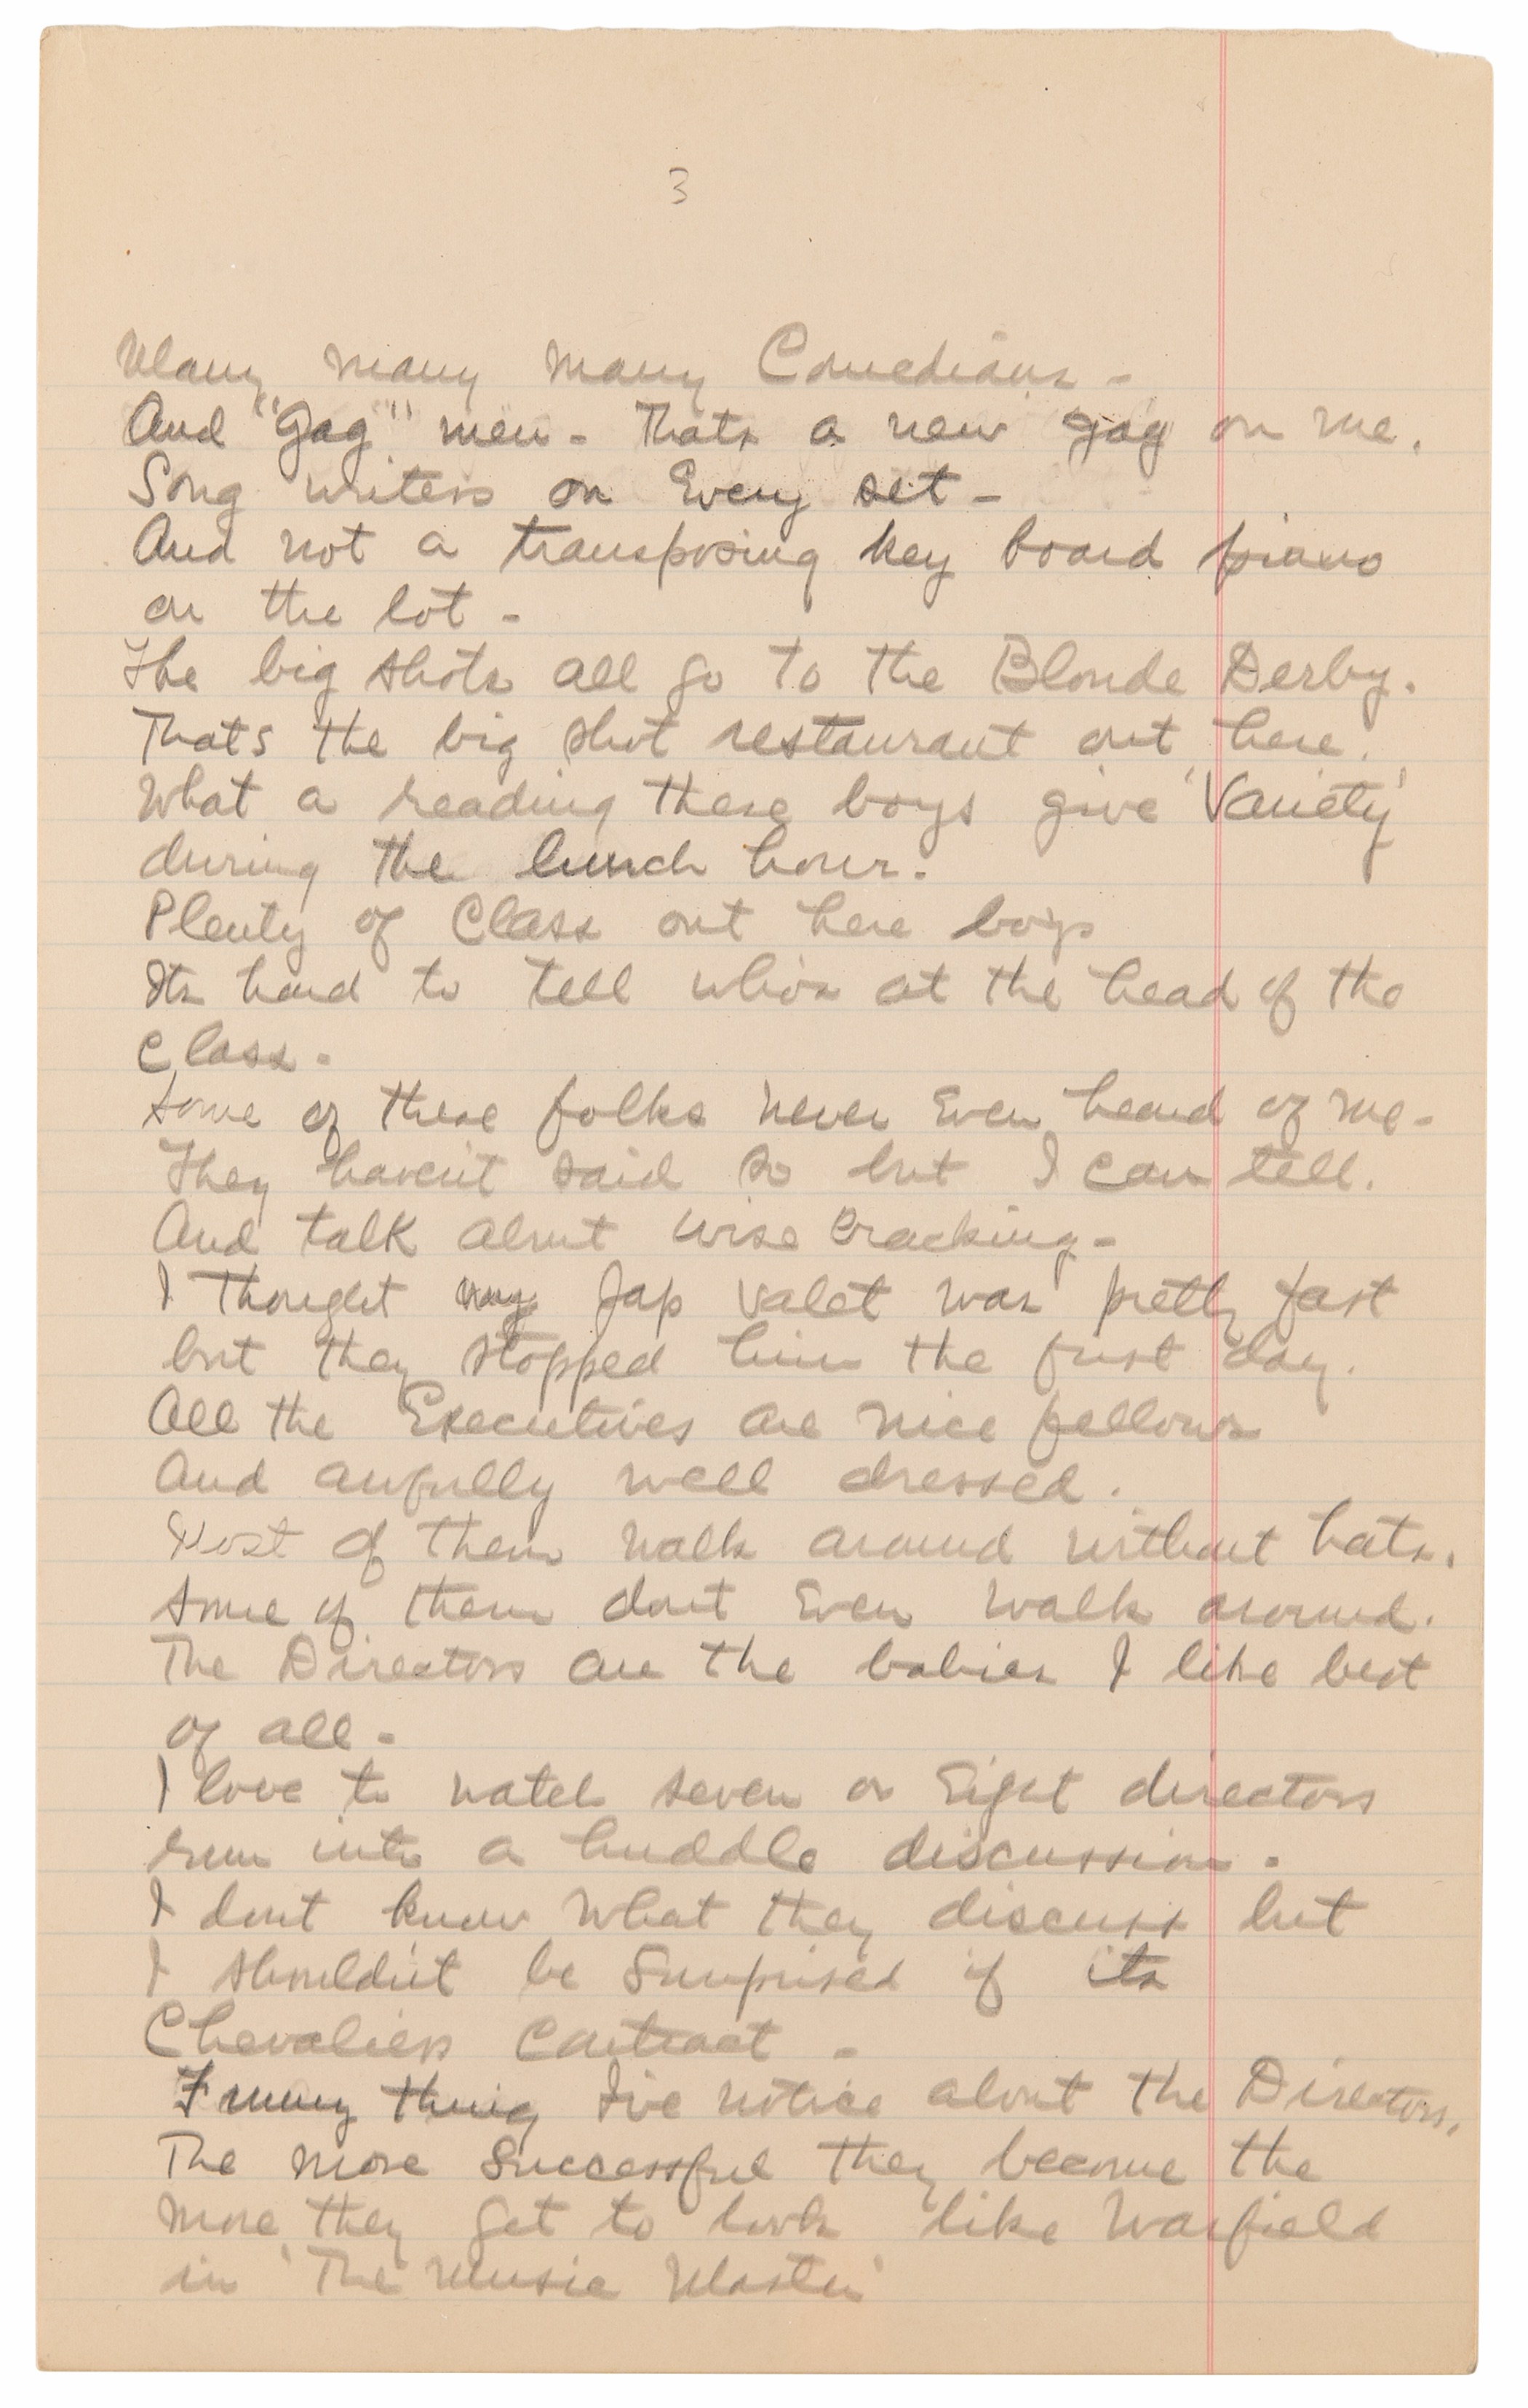 3
Many many many Comedians -
And "Gag" men - Thats a new gag on me.
Song writers on Every set -
And not a transposing key board piano
on the lot -
The big shots all go to the Blonde Derby.
Thats the big shot restaurant out here.
What a reading these boys give 'Variety'
during the lunch hour.
Plenty of Class out here boys
Its hard to tell who's at the head of the
Class -
Some of these folks never Even heard of me -
They haven't said so but I can tell.
And talk about wise cracking -
I thought my Jap valet was pretty fast
but they stopped him the first day.
All the Executives are nice fellows
And awfully well dressed.
Most of them walk around without hats.
Some of them dont Even walk around.
The Directors are the babies I like best
of all -
I love to watch seven or Eight directors
run into a huddle discussion -
I dont know what they discuss but
I shouldn't be surprised if its
Chevaliers Contract -
Funny thing I've notice about the Directors.
The more successful they become the
more they get to look like Warfield
in 'The Music Master'